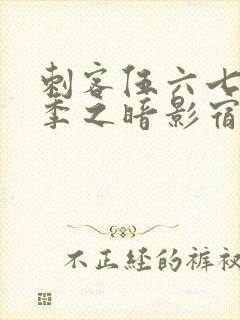 刺客伍六七
季之暗影宿
不正经的裤衩